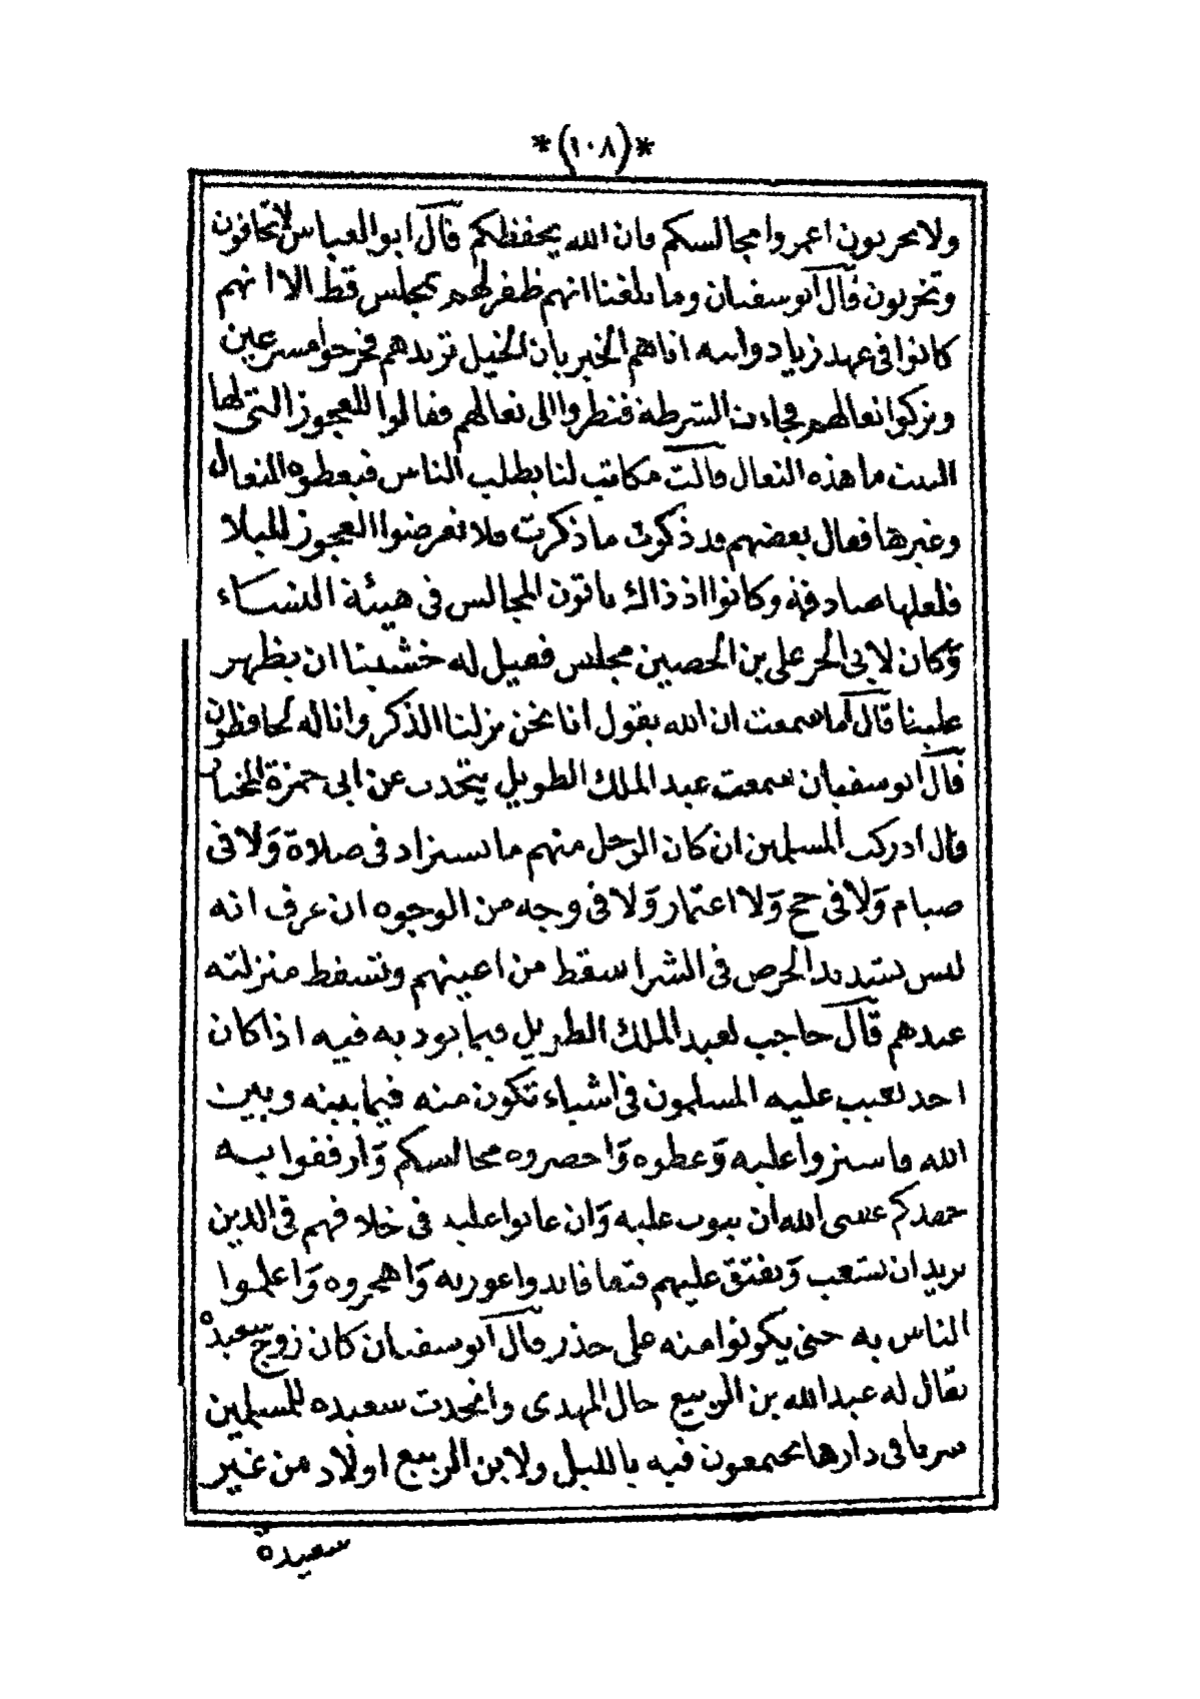 *(١٠٨)*
ولا تحربون اعمروا مجالسكم فان الله يحفظكم قال ابو العباس لا تخافون
وتخربون قال ابو سفيان وما بلغنا انهم ظفر لهم بمجلس قط الا انهم
كانوا في عهد زياد وابنه اتاهم الخبر بان الخيل تريدهم فخرجوا مسرعين
وتركوا نعالهم فجاءت الشرطة فنظروا الى نعالهم فقالوا للعجوز التي لها
البيت ما هذه النعال قالت مكاتب لنا يطلب الناس فيعطوه النعال
وغيرها فقال بعضهم قد ذكرت ما ذكرت فلا تعرضوا العجوز للبلا
فلعلها صادقة وكانوا اذ ذاك ياتون المجالس في هيئة النساء
وكان لابي الحر علي بن الحصين مجلس فقيل له خشينا ان يظهر
علينا قال اما سمعت ان الله يقول انا نحن نزلنا الذكر وانا له لحافظون
قال ابو سفيان سمعت عبد الملك الطويل يتحدث عن ابي حمزة المختار
قال ادركت المسلمين ان كان الرجل منهم ما يستزاد في صلاة ولا في
صيام ولا في حج ولا اعتمار ولا في وجه من الوجوه ان عرف انه
ليس بشديد الحرص في الشرا سقط من اعينهم وتسقط منزلته
عندهم قال حاجب لعبد الملك الطويل فيما يود به فيه اذا كان
احد تعيب عليه المسلمون في اشياء تكون منه فيما بينه وبين
الله فاستزوا عليه وعطوه واحصروه مجالسكم وارفقوا به
جهدكم عسى الله ان يتوب عليه وان عابوا عليه في خلافهم في الدين
يريد ان يشعب ويفتق عليهم فتقا فابدوا عوربه واهجروه واعلموا
الناس به حتى يكونوا منه على حذر قال ابو سفيان كان زوج سعيدة
يقال له عبد الله بن الربيع خال المهدى واتخدت سعيده للمسلمين
سربا في دارها يجتمعون فيه بالليل ولابن الربيع اولاد من غير
سعيدة